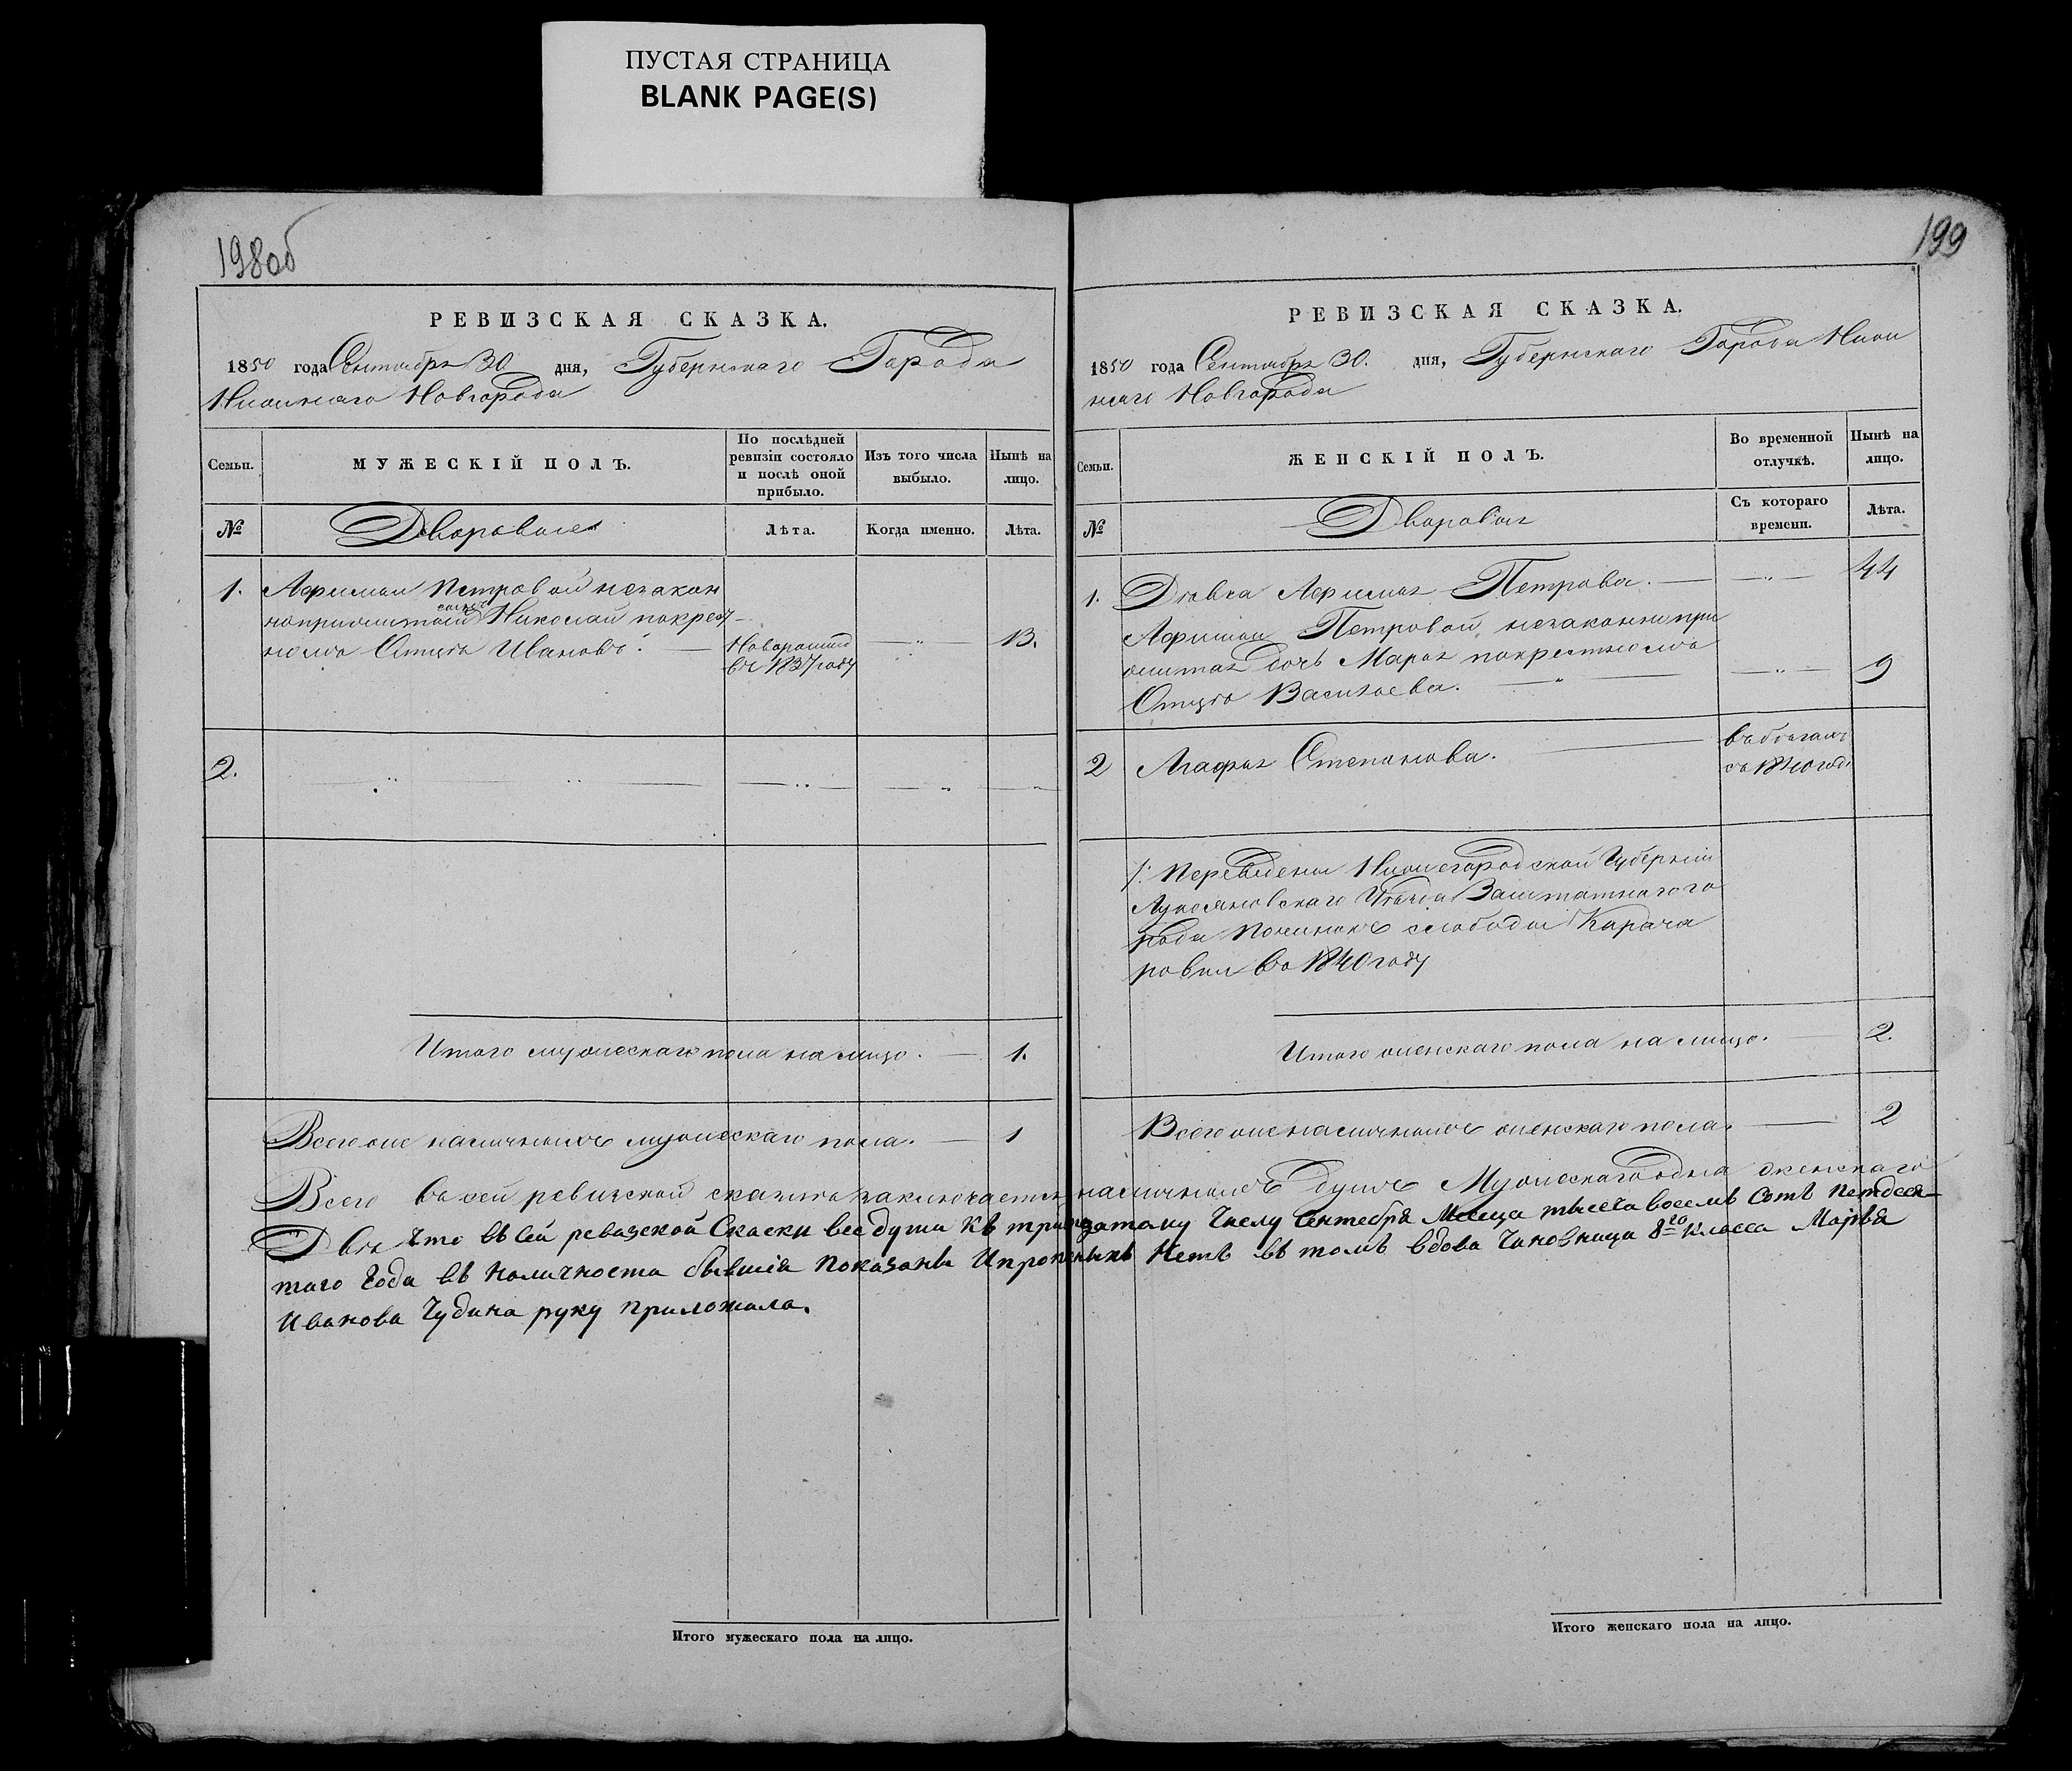 ПУСТАЯ СТРАНИЦА
BLANK PAGE(S)
198об
РЕВИЗСКАЯ СКАЗКА.
1850 года Сентября 30 дня, Губернскаго Города
Нижняго Новгорода
Семьи.
МУЖЕСКІЙ ПОЛЪ.
По послѣдней
ревизіи состояло
и послѣ оной
прибыло.
Изъ того числа
выбыло.
Нынѣ на
лицо.
№
Дворовые
Лѣта.
Когда именно.
Лѣта.
1. Афимьи Петровой незакон
ноприжитый сынъ Николай покрест
ному Отцу Ивановъ.
Новорожд
въ 1837 году
13.
2.
Итого мужескаго пола на лицо. 1.
Всего же наличныхъ мужескаго пола. 1
199
РЕВИЗСКАЯ СКАЗКА.
1850 года Сентября 30. дня, Губернскаго Города Ниж
няго Новгорода
Семьи.
ЖЕНСКІЙ ПОЛЪ.
Во временной
отлучкѣ.
Нынѣ на
лицо.
№
Дворовыя
Съ котораго
времени.
Лѣта.
1. Дѣвка Афимья Петрова. 44
Афимьи Петровой, незаконнопри
житая дочь Марья покрестному
Отцу Васильева. 9
2 Агафья Степанова.
въ бѣгахъ
съ 1840 года
Переведены Нижегородской Губерніи
Лукояновскаго Уѣзда Заштатнаго го
рода Починокъ слободы Карача
ровки въ 1840 году
Итого женскаго пола на лицо. 2.
Всего же наличныхъ женскаго пола. 2
Всего въ сей ревизской сказкѣ заключается наличныхъ душъ Мужескаго одна женскаго
Двѣ Что въ Сей ревизской Скаски все души Къ тридцатому Числу Сентебря Месеца тысеча восемь Сотъ петдеся-
таго Года въ наличности бывшія показаны И прописныхъ Нетъ въ томъ вдова Чиновница 8го Класса Марья
Иванова Чудина руку приложила.
Итого мужескаго пола на лицо.
Итого женскаго пола на лицо.